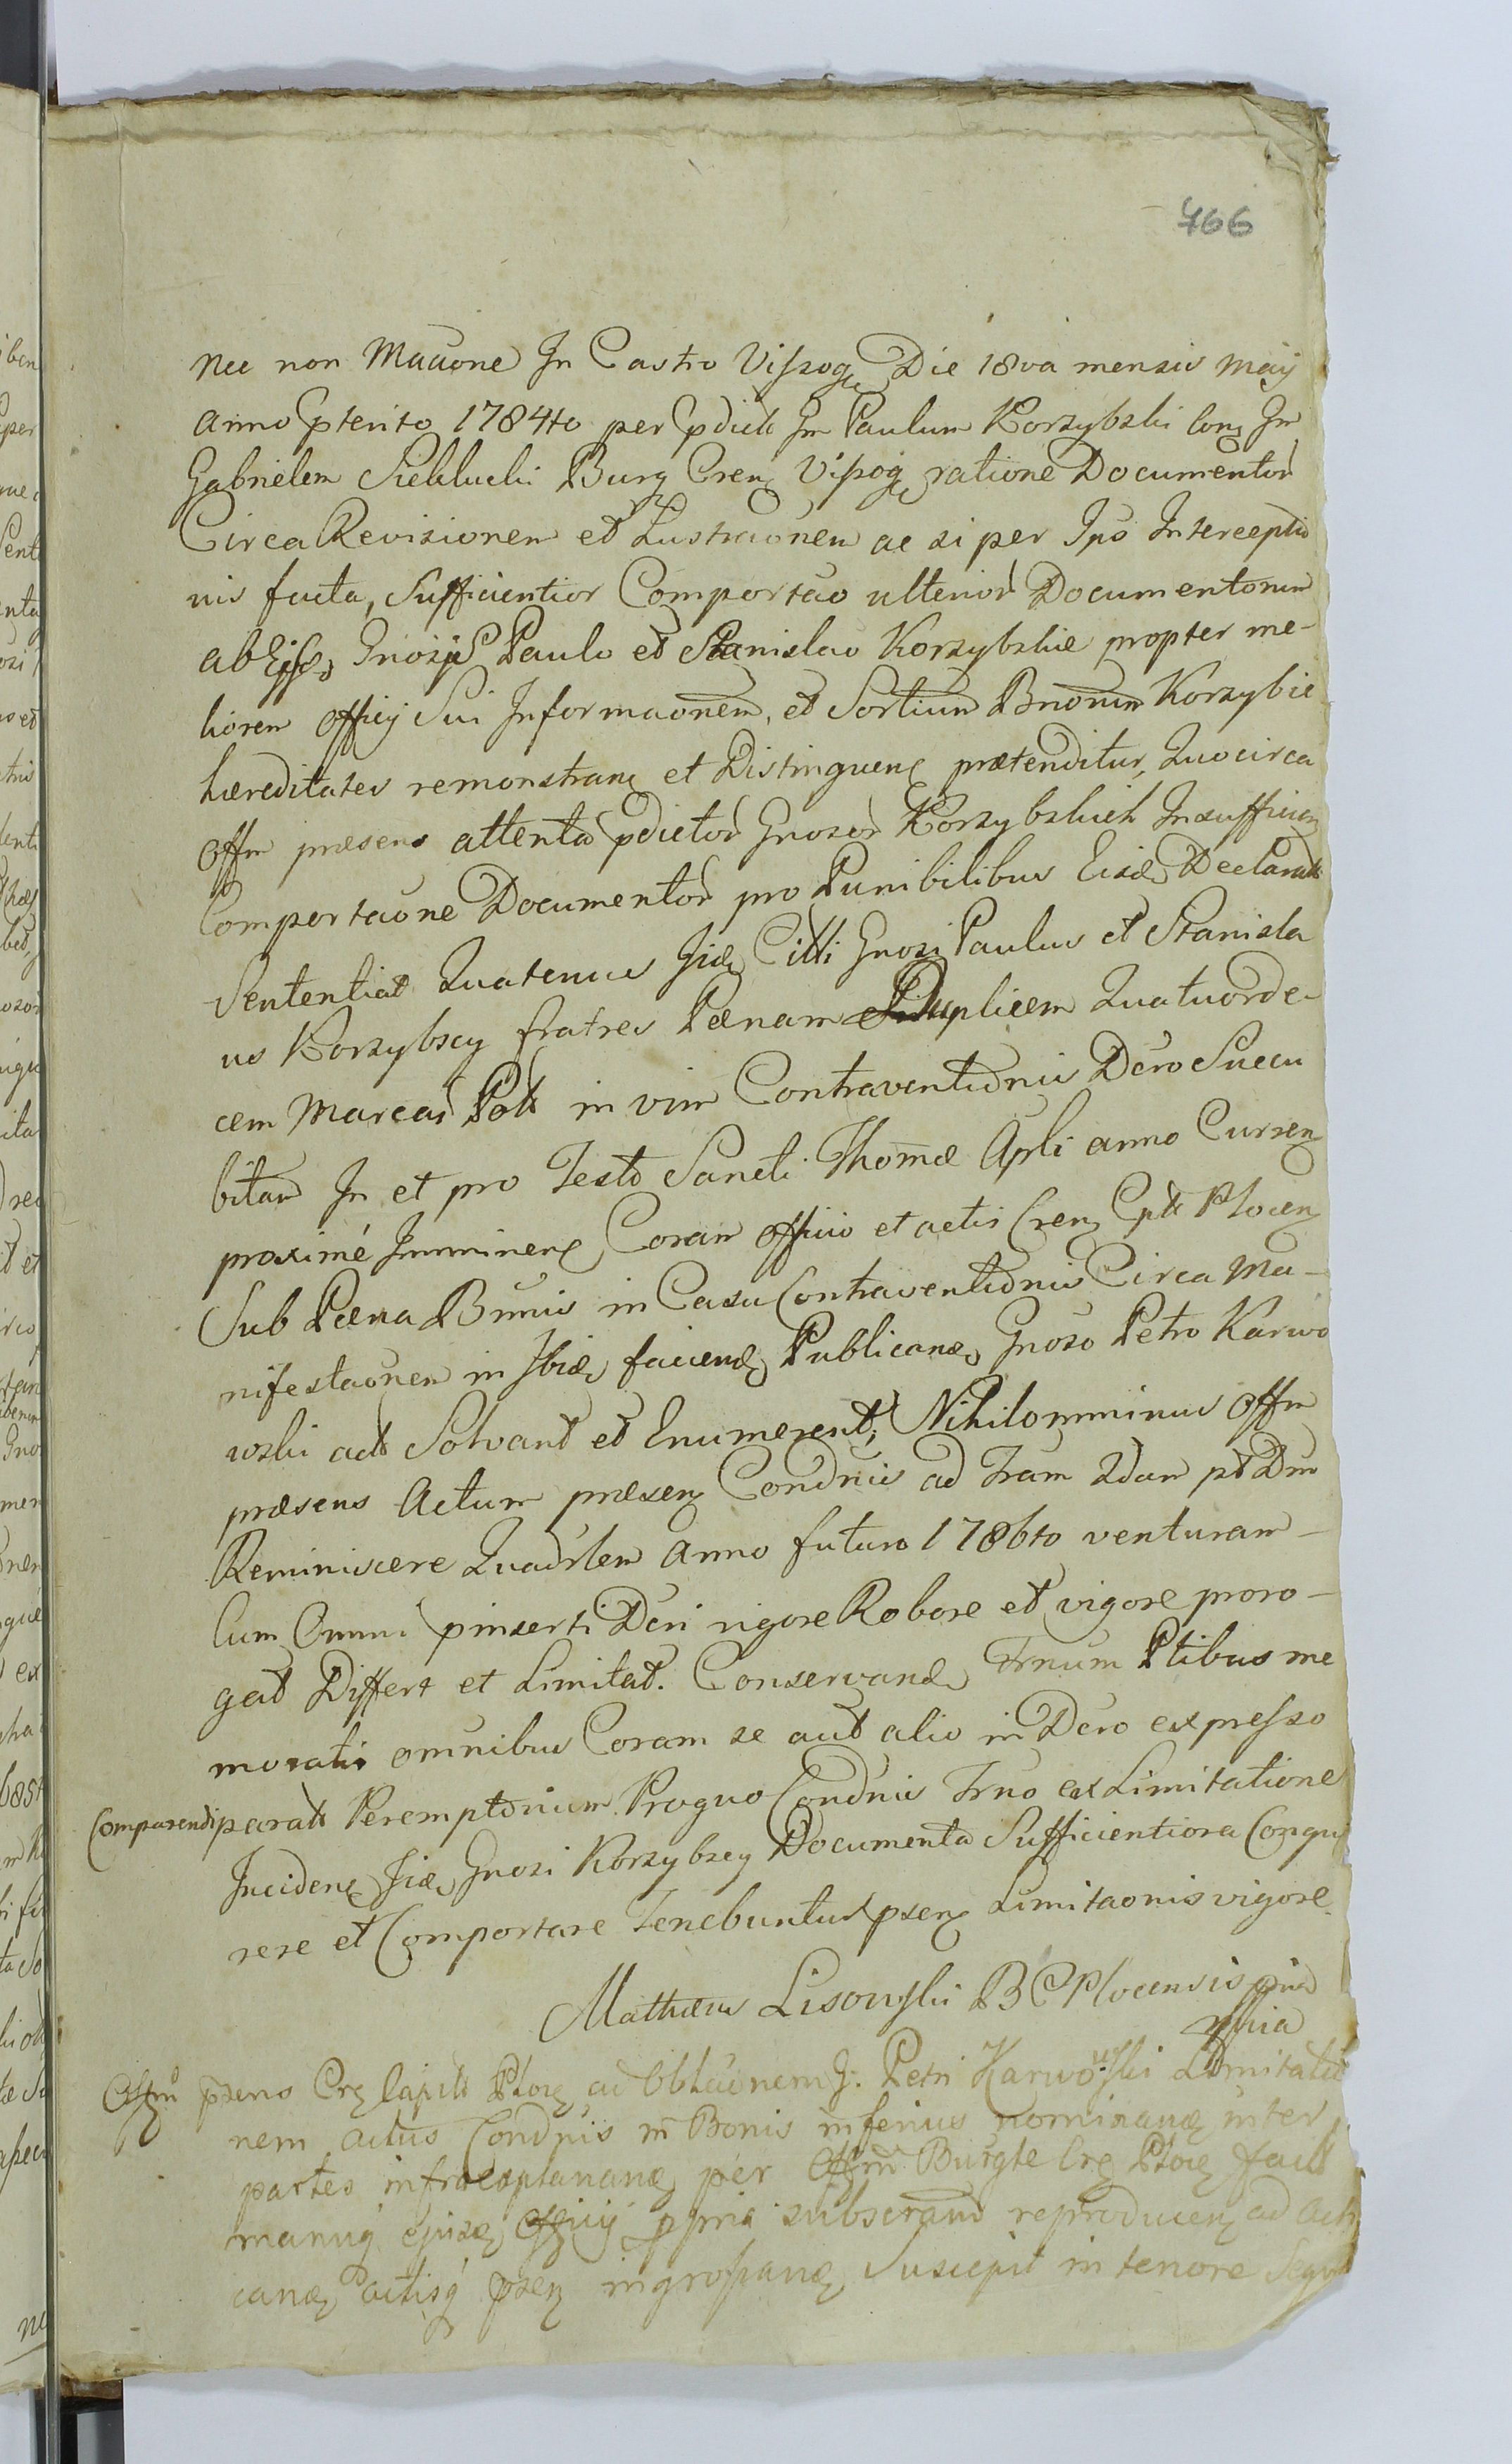 466
nec non Maãone In Castro Vissog Die 18va mensis Maij
Anno pterito 1784to per pdict Gm Paulum Korzybski con Gm
Gabrielem Sieklucki Burg Cren Vissog ratione Documentor
Circa Revisionem et Lustraõnem ac si per Ipõ Interceptio
nis facta, Sufficientior Comportão ulterior Documentorum
ab Eisd Gnosis Paulo et Stanislao Korzybskie propter me-
liorem officij Sui Informaõnem, et Sortium Bnorum Korzybie
hæreditates remonstran et Distinguen prætenditur, Quocirca
Offm præsens attenta pdictor Gnosor Korzybskich Insufficien
Comportaõne Documentor pro Punibilibus Eisd Declarat
Sententiat Quatenus Iid Citti Gnosi Paulus et Stanisla
us Korzybscy fratres Pænam Duplicem Quatuorde-
cem Marcar Poll in vim Contraventionis Dcro Succu
bitam In et pro Festo Sancti Thomæ Apli anno Curren
proximé Imminen Coram officio et actis Cren Cptt Plocen
Sub Pæna Bnnis in Casu Contraventionis Circa Ma-
nifestaõnem in Ibid faciend Publicand Gnoso Petro Karwo
wski act Solvant et Enumerent; Nihilomminus Offm
præsens Actum præsen Condnis ad Fram 2dam pt Dm
Reminiscere Quadrlem Anno futuro 1786to venturam
Cum Omni pinserti Dcri rigore Robore et vigore proro-
gat Differt et Limitat. Conservand Trnum Ptibus me
moratis omnibus Coram se aut alio in Dcro expresso
Comparendi parati Peremptorium. Pro quo Condnis Trno ex Limitatione
Inciden Iid Gnosi Korzybscy Documenta Sufficientiora Conqui
rere et Comportare Tenebuntur psen Limitaõnis vigore.
Mathæus Lisowski B C Plocensis
mppria
Offm psens Cre Capitt Ploc ad Oblaõnem G. Petri Karwowski Limitatio
nem actus Condnis in Bonis inferius nominand inter
partes infra explanand per Offm Burgte Cre Ploc fact
manuq ejusd Officij ppria subscrand reproducen ad act
icand actisq psen ingrossand Suscepit in tenore Sequ